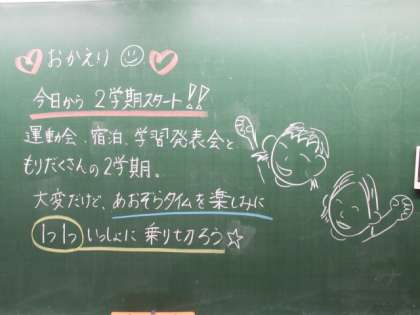 おかえり
今日から 2学期スタート!!
運動会、宿泊、学習発表会と
もりだくさんの2学期。
大変だけど、あおぞらタイムを楽しみに
1つ1つ いっしょに 乗り切ろう☆